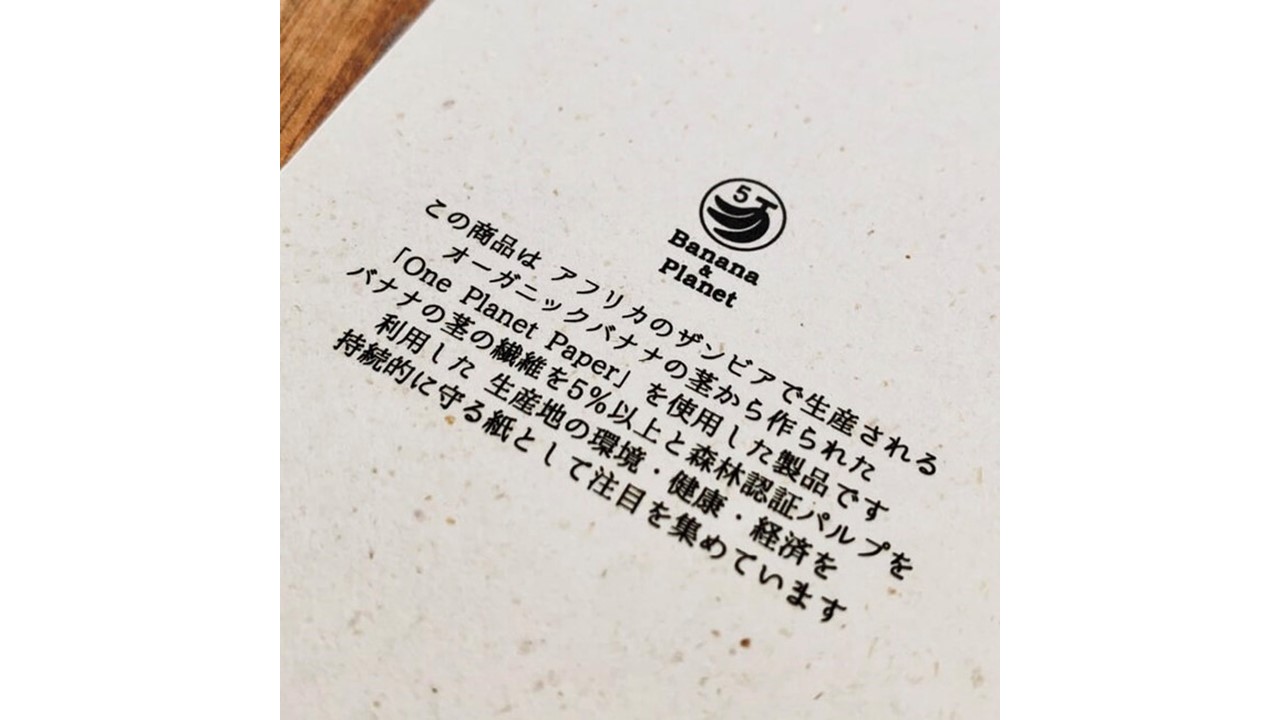 5
Banana
&
Planet
この商品は アフリカのザンビアで生産される
オーガニックバナナの茎から作られた
「One Planet Paper」を使用した製品です
バナナの茎の繊維を5%以上と森林認証パルプを
利用した 生産地の環境・健康・経済を
持続的に守る紙として注目を集めています